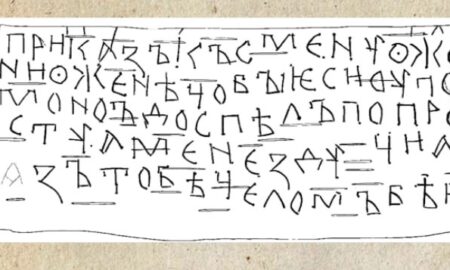 ПРНКАЗЪКЪСМЕНУОЖ
ННОЖЕНѢЧОБЪІЕСНОУПО
МОНОЪДОСПѢЛЪПОПРО
СТУАМЕНЕЗДУЧНА
АЗЪТОБѢЧЕЛОМЪБѢ